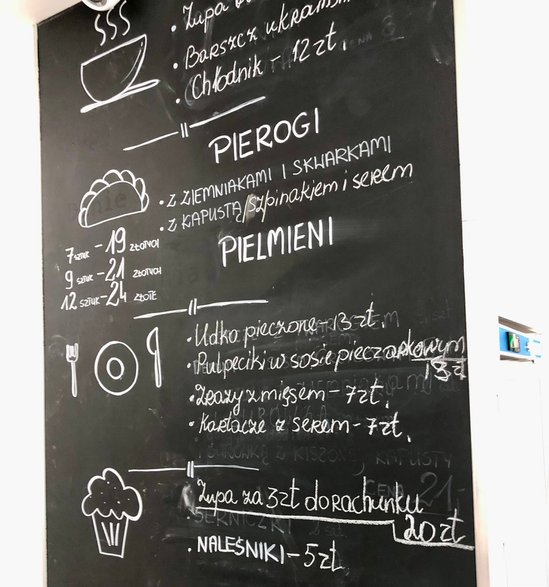 Zupa
Barszcz ukraiński
Chłodnik - 12 zł.
PIEROGI
Z ZIEMNIAKAMI I SKWARKAMI
Z KAPUSTĄ/szpinakiem i serem
PIELMIENI
7 SZTUK - 19 ZŁOTYCH
9 SZTUK - 21 ZŁOTYCH
12 SZTUK - 24 ZŁOTE
Udko pieczone - 13 zł.
Pulpeciki w sosie pieczarkowym
13 zł
Zrazy z mięsem - 7 zł.
Kartacze z serem - 7 zł.
Zupa za 3 zł do rachunku
20 zł
SERNICZKI
NALEŚNIKI - 5 zł